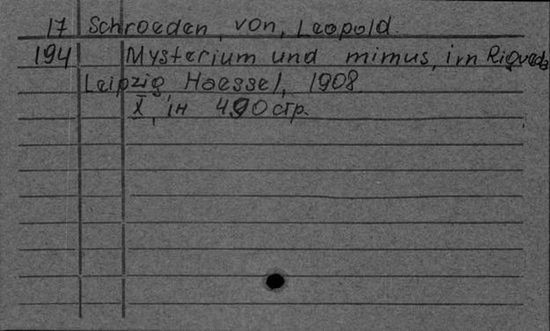 17 Schroeden, von, Leopold.
194 Mysterium und mimus, im Rigveda
Leipzig, Haessel, 1908
X, ін 490 стр.